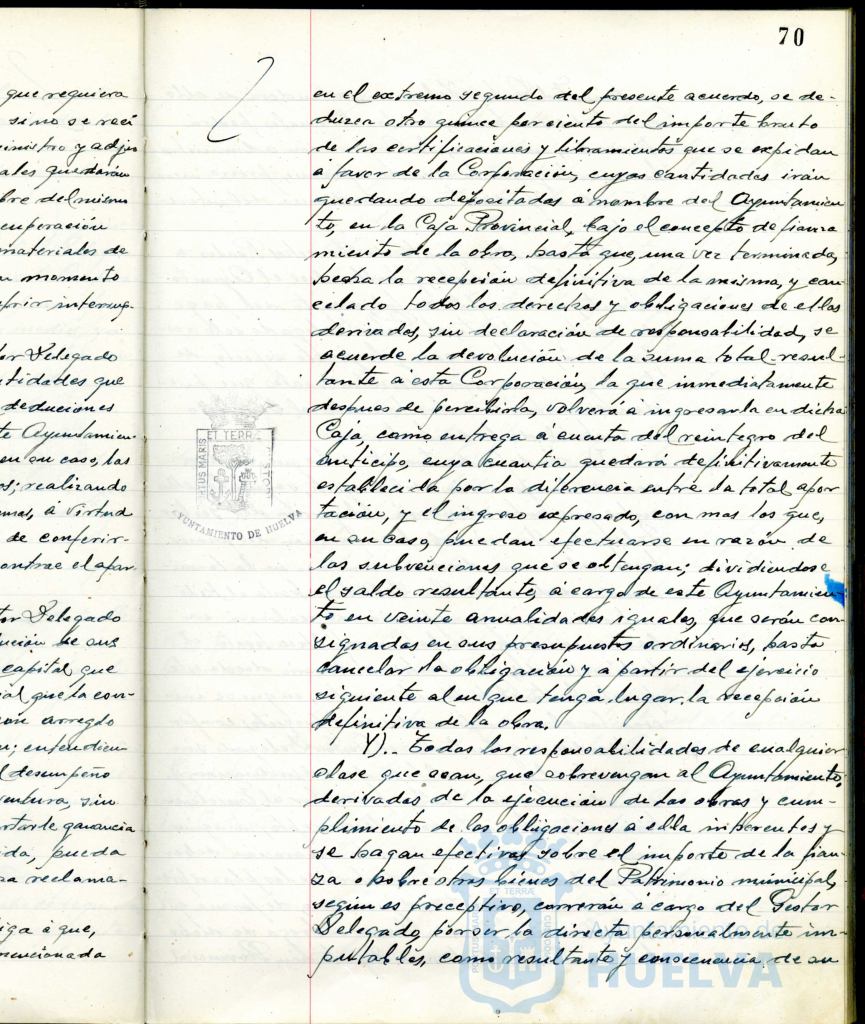 70
que requiera
si no se reci
ministro y adju
ales quedarán
bre del mismo
cuperación
materiales de
momento
or Delegado
tidades que
deduciones
te Ayuntamien-
en su caso, las
os; realizando
mas, á virtud
de conferir-
contrae el apar
tor Delegado
lución de sus
capital que
ial que la con-
con arreglo
n; entendien-
l desempeño
ventura, sin
ortarle ganancia
ida, pueda
sa reclama-
iga á que,
mencionada
en el extremo segundo del presente acuerdo, se de-
duzca otro quince por ciento del importe bruto
de las certificaciones y libramientos que se expidan
á favor de la Corporación, cuyas cantidades irán
quedando depositadas á nombre del Ayuntamien
to, en la Caja Provincial, bajo el concepto de fianza
miento de la obra, hasta que, una vez terminada,
hecha la recepción definitiva de la misma, y can-
celado todos los derechos y obligaciones de ellos
derivados, sin declaración de responsabilidad, se
acuerde la devolución de la suma total resul-
tante á esta Corporación, la que inmediatamente
despues de percibirla, volverá á ingresarla en dicha
Caja, como entrega á cuenta del reintegro del
anticipo, cuya cuantia quedará definitivamente
establecida por la diferencia entre la total apor
tación, y el ingreso expresado, con mas los que,
en su caso, puedan efectuarse en razón de
las subvenciones que se obtengan; dividiendose
el saldo resultante, á cargo de este Ayuntamien-
to en veinte anualidades iguales, que serán con-
signadas en sus presupuestos ordinarios, hasta
cancelar la obligación y á partir del ejercicio
siguiente al en que tenga lugar la recepción
definitiva de la obra.
Y).- Todas las responsabilidades de cualquier
clase que sean, que sobrevengan al Ayuntamiento,
derivadas de la ejecución de las obras y cum-
plimiento de las obligaciones á ella inherentes y
se hagan efectivas sobre el importe de la fian-
za o sobre otros bienes del Patrimonio municipal,
segun es preceptivo, correrán á cargo del Gestor
Delegado, por ser la directa personalmente im-
putables, como resultante y consecuencia de su
ET TERRÆ
PORTUS MARIS
CUSTODIA
AYUNTAMIENTO DE HUELVA
ET TERRÆ
PORTUS MARIS
CUSTODIA
Ayuntamiento de
HUELVA